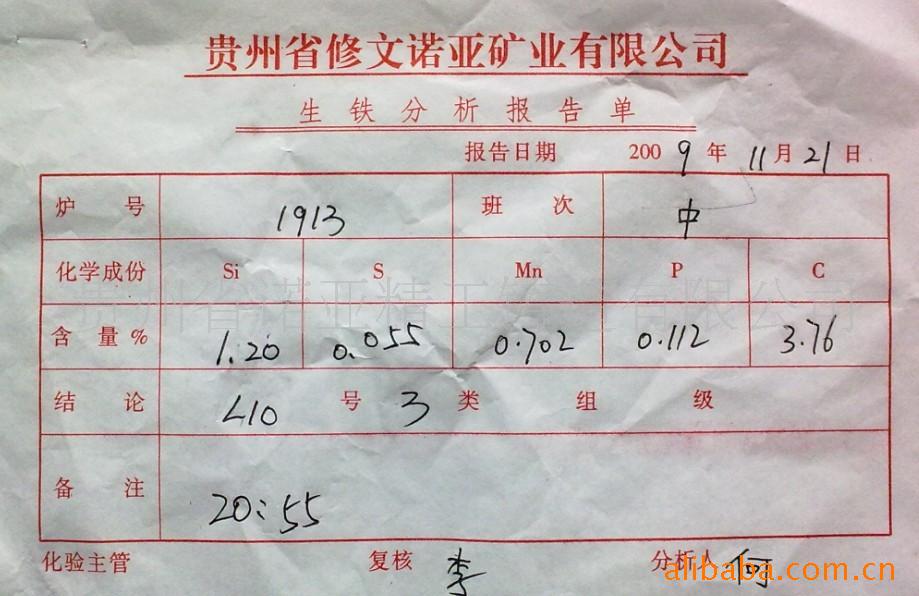 贵州省修文诺亚矿业有限公司
生铁分析报告单
报告日期 2009年11月21日
炉号 1913 班次 中
化学成份 Si S Mn P C
含量% 1.20 0.055 0.702 0.112 3.76
结论 L10 号 3 类 组 级
备注 20:55
化验主管 复核 李 分析人 何
alibaba.com.cn